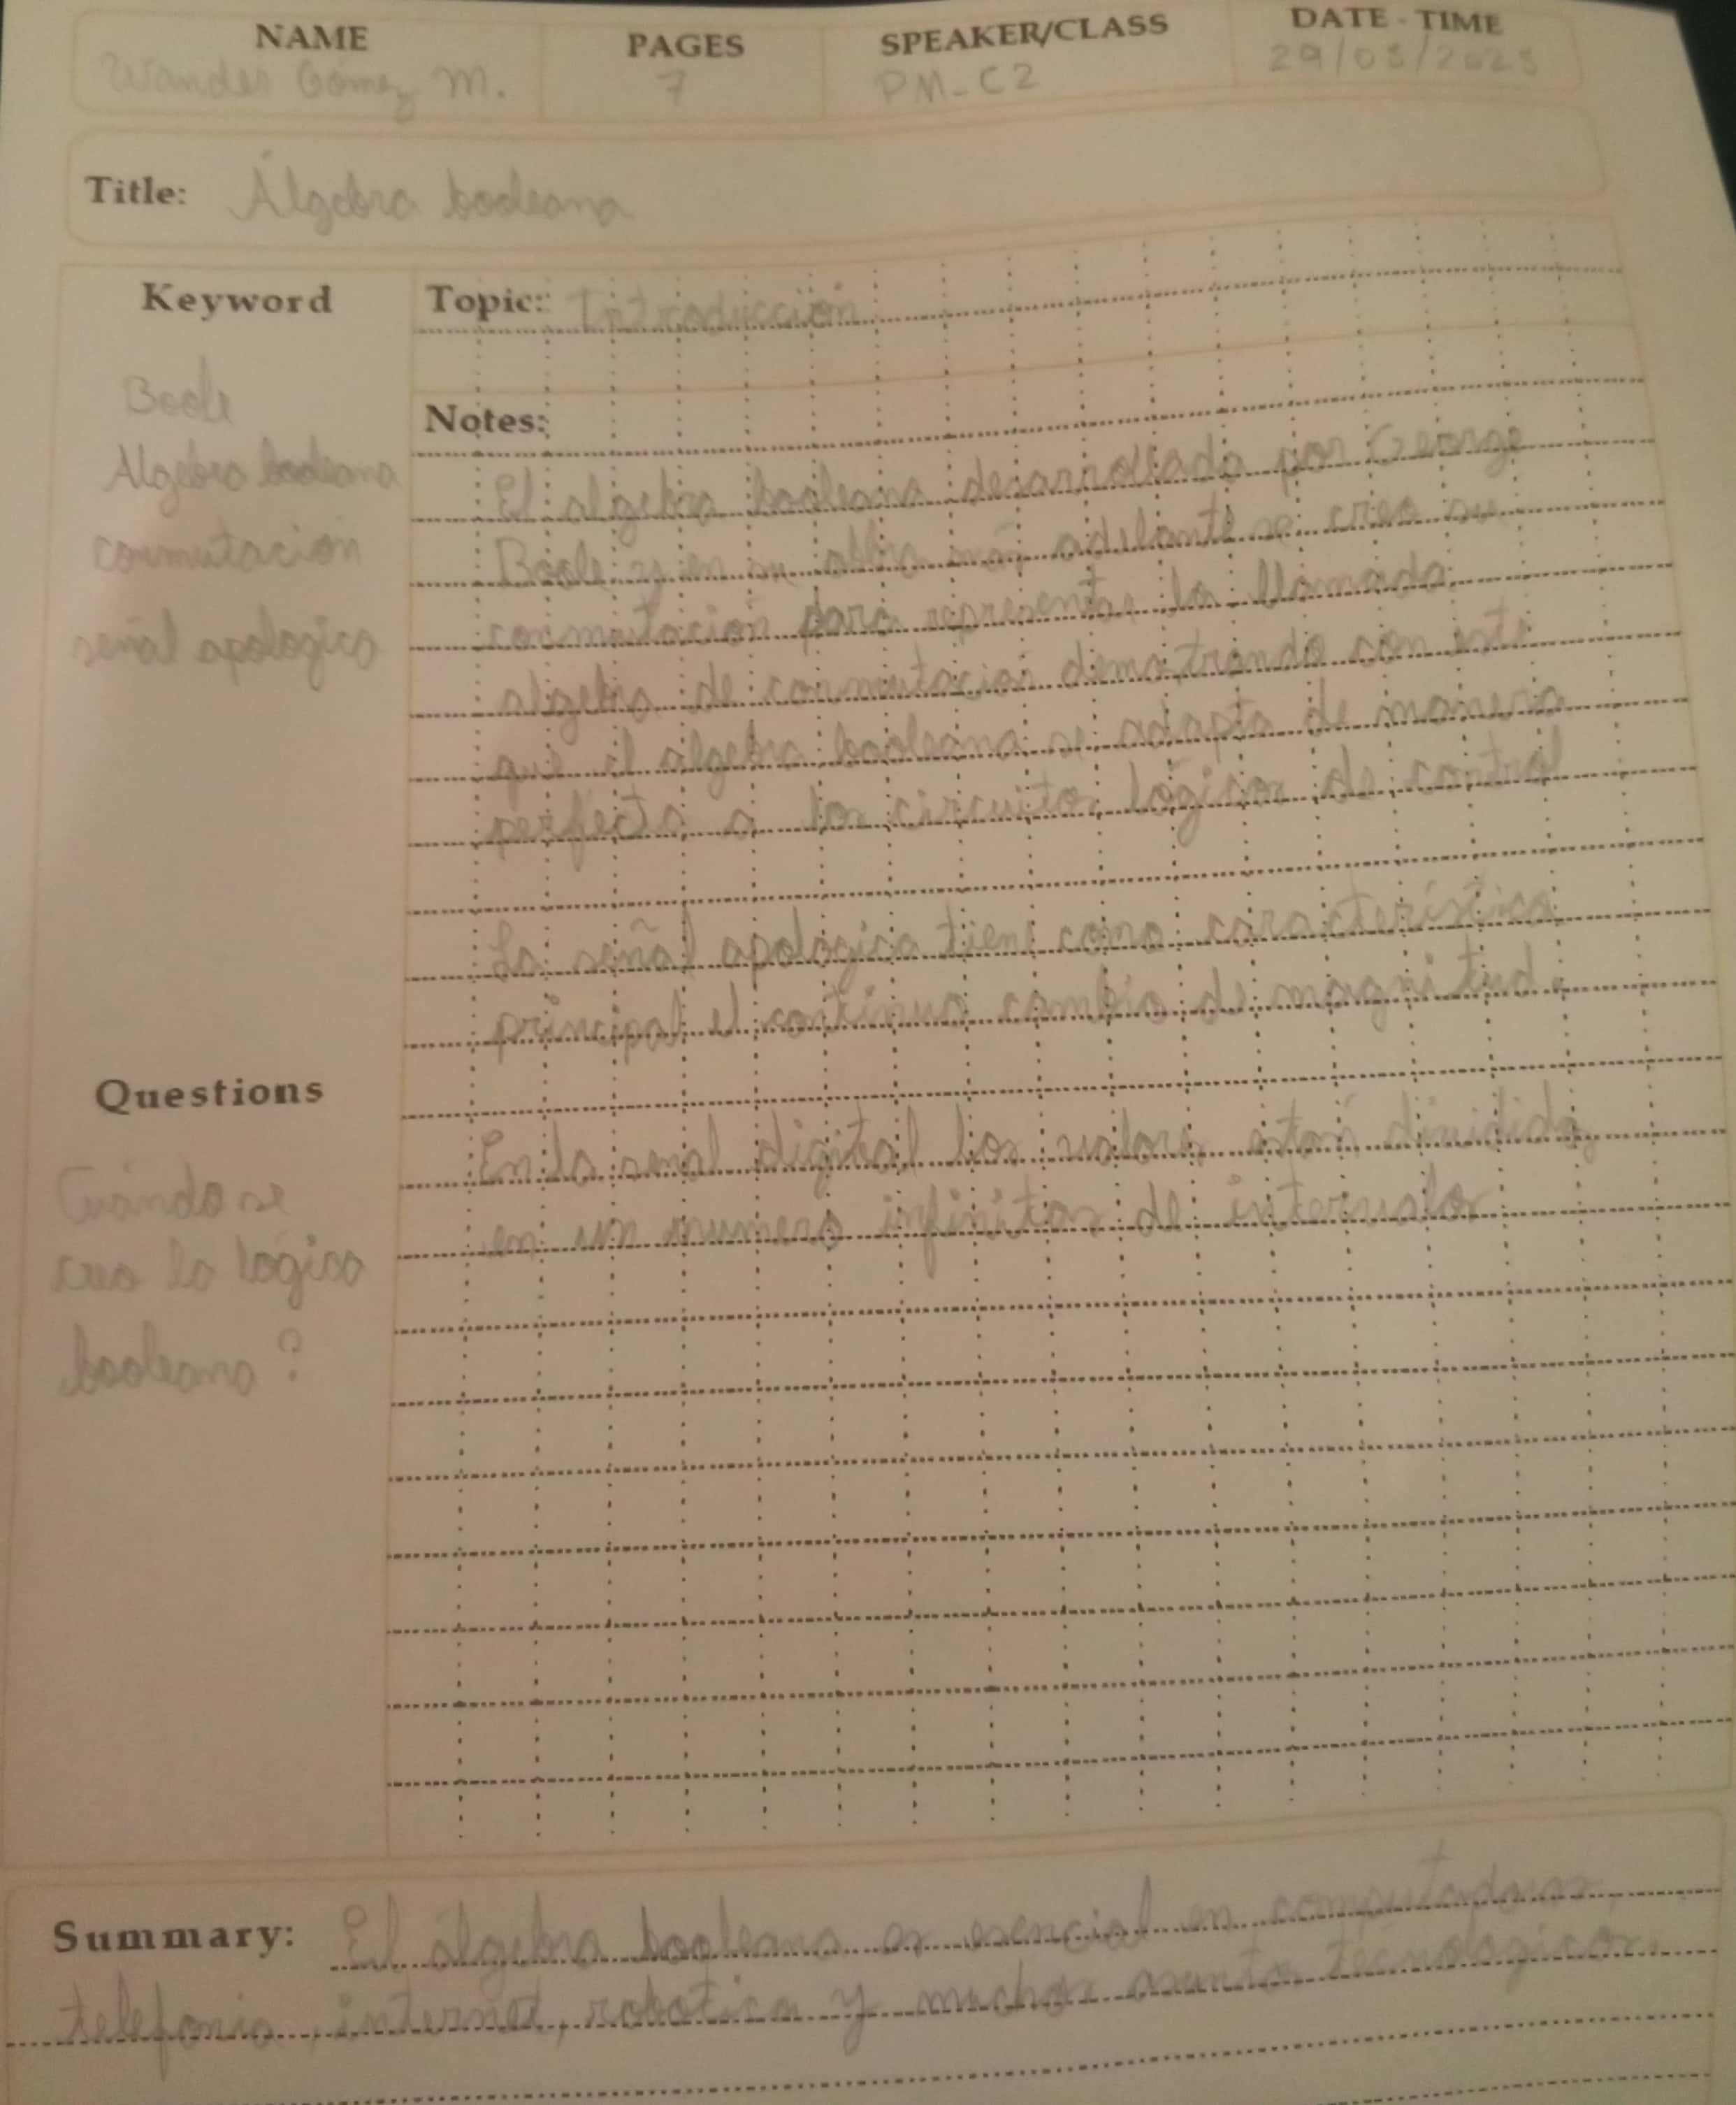 NAME
PAGES
SPEAKER/CLASS
DATE - TIME
Wander Gómez M.
7
PM-C2
29/03/2023
Title: Álgebra booleana
Keyword
Boole
Algebra booleana
conmutacion
señal apologica
Topic: Introducción
Notes:
El algebra booleana desarrollada por George
Boole y en su obra mas adelante se creo su
conmutacion para representar la llamada
algebra de conmutacion demostrando con esto
que el álgebra booleana se adapta de manera
perfecta a los circuitos lógicos de control
La señal apologica tiene como característica
principal el continuo cambio de magnitud.
En la senal digital los valores estan dividido
en un numero infinitos de intervalos
Questions
Cuándo se
creo la lógica
booleana?
Summary: El álgebra booleana es esencial en computadoras,
telefonia, internet, robotica y muchos asuntos tecnologicos.